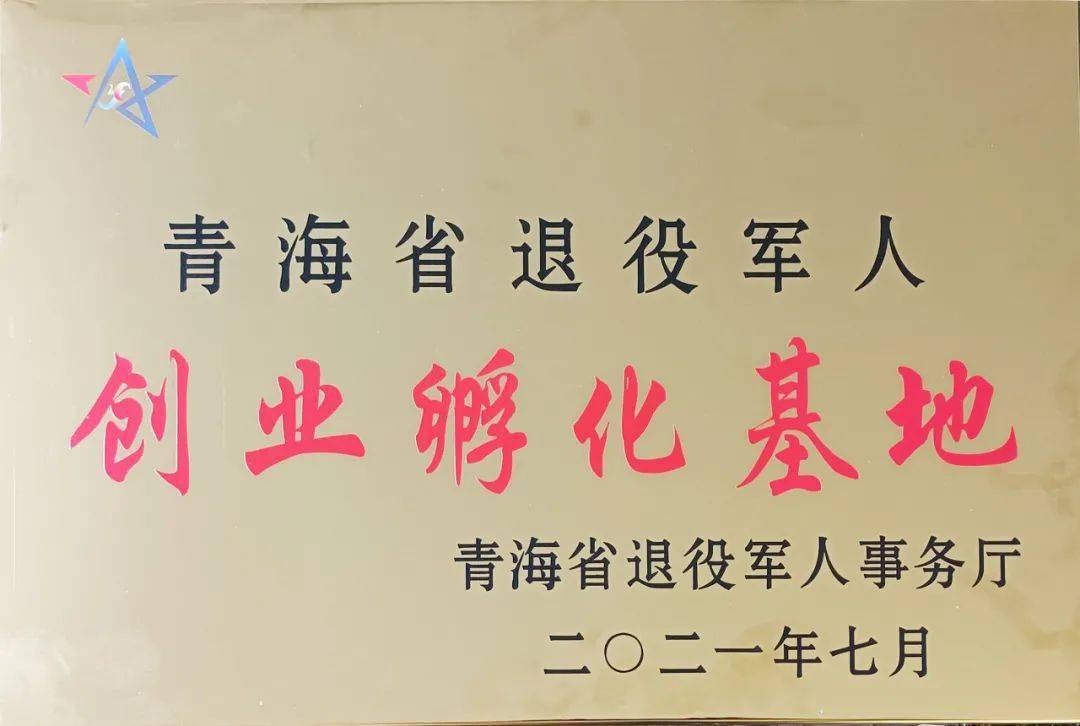 青海省退役军人
创业孵化基地
青海省退役军人事务厅
二〇二一年七月